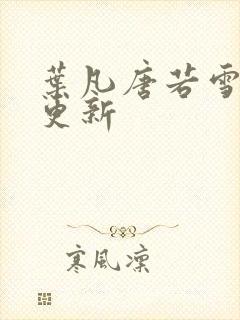 葉凡唐若雪
更新
寒風凜